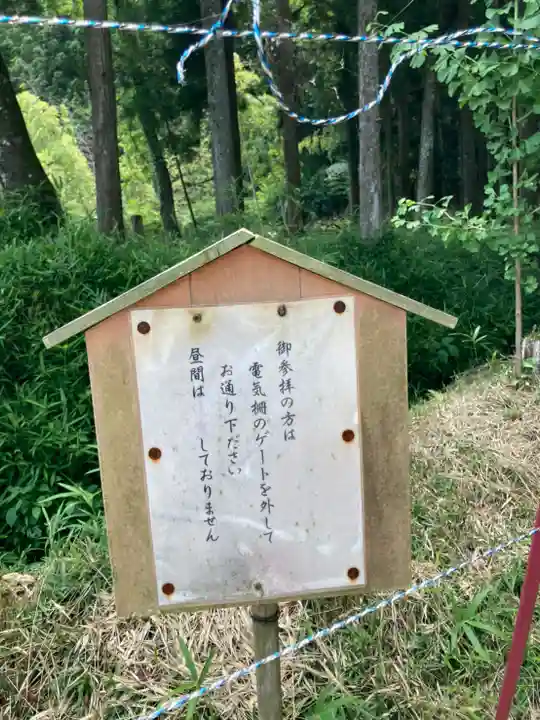 御参拝の方は
電気柵のゲートを外して
お通り下ださい
昼間は　しておりません